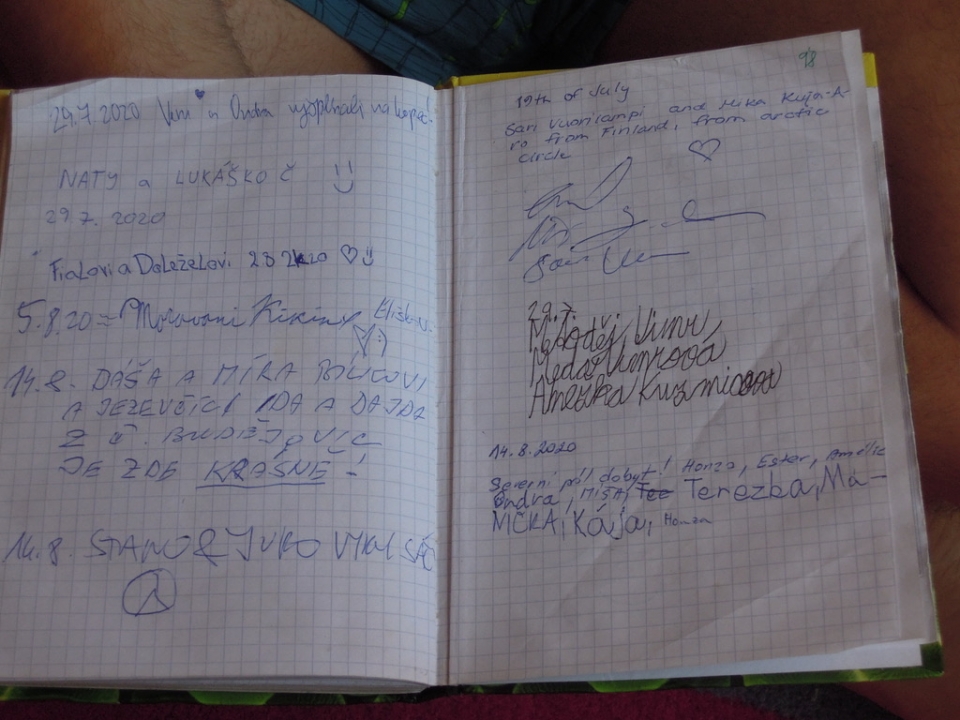 29.7.2020 Veni a Ondra vyšplhali na kopec!
NATY a LUKÁŠKO Č
29.7. 2020
Fialovi a Doleželovi 28 2020
5.8.20 = Moravani Kikiny
14.8. DÁŠA A MÍRA
A JEZEVČÍCI IDA A DAJDA
Z Č. BUDĚJOVIC
JE ZDE KRÁSNĚ !
14.8. STANO & JURO
98
19th of July
Sari Vuorilampi and Mika Kuja-A-
ro from Finland, from arctic
circle
29.7.
Metoděj Vimr
Vimrová
Anežka
14.8.2020
Severní pól dobyt! Honza, Ester, Amálie
Ondra, MÍŠA, Terezba, Ma-
NIČKA, Kája, Honza